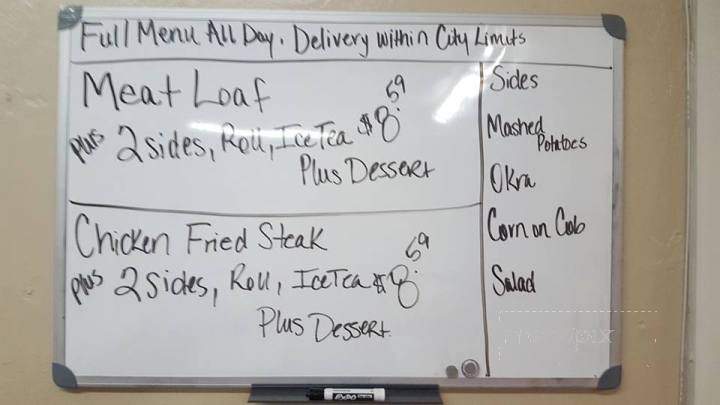 Full Menu All Day. Delivery within City Limits
Meat Loaf
plus 2 sides, Roll, Ice Tea $8.59
Plus Dessert
Chicken Fried Steak
plus 2 sides, Roll, Ice Tea $8.59
Plus Dessert
Sides
Mashed
Potatoes
Okra
Corn on Cob
Salad
EXPO